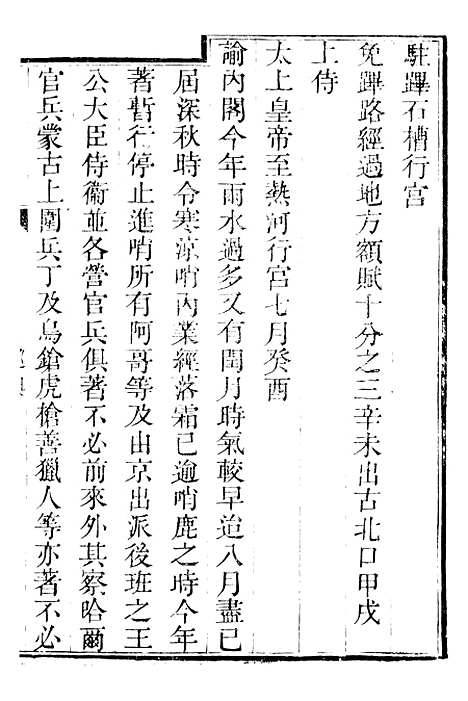 駐蹕石槽行宮
免蹕路經過地方額賦十分之三辛未出古北口甲戌
上侍
太上皇帝至熱河行宮七月癸酉
諭內閣今年雨水過多又有閏月時氣較早迨八月盡已
屆深秋時令寒涼哨內業經落霜已逾哨鹿之時今年
著暫行停止進哨所有阿哥等及由京出派後班之王
公大臣侍衞並各營官兵俱著不必前來外其察哈爾
官兵蒙古上圍兵丁及鳥鎗虎槍善獵人等亦著不必